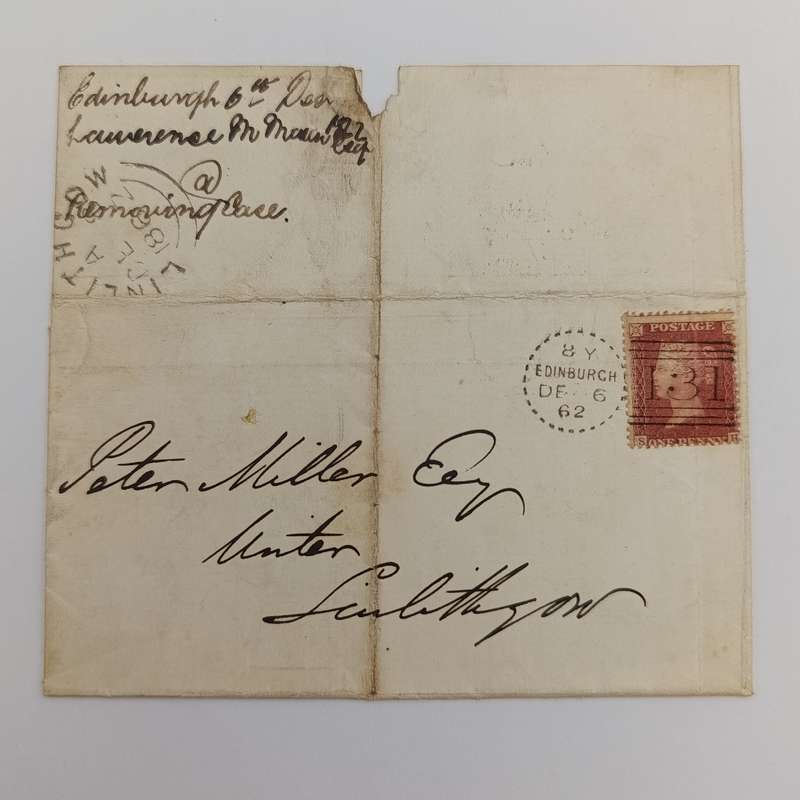 Edinburgh 6th Decr
Lawrence M
@
Removing Case.
LINLITHGOW
8 Y
EDINBURGH
DE 6
62
POSTAGE
131
S ONE PENNY H
Peter Miller Esq
Writer
Linlithgow